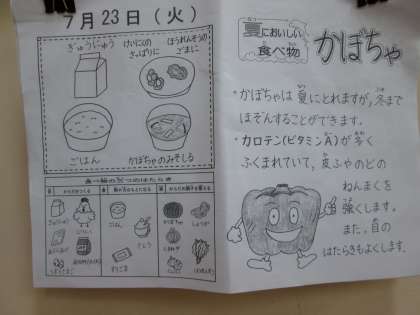 7月23日(火)
ぎゅうにゅう
けいにくの
さっぱりに
ほうれんそうの
ごまに
ごはん
かぼちゃのみそしる
食べ物の三つのはたらき
夏においしい
食べ物
かぼちゃ
・かぼちゃは夏にとれますが、冬まで
ほぞんすることができます。
・カロテン(ビタミンA)が多く
ふくまれていて、皮ふやのどの
ねんまくを
強くします。
また、目の
はたらきもよくします。